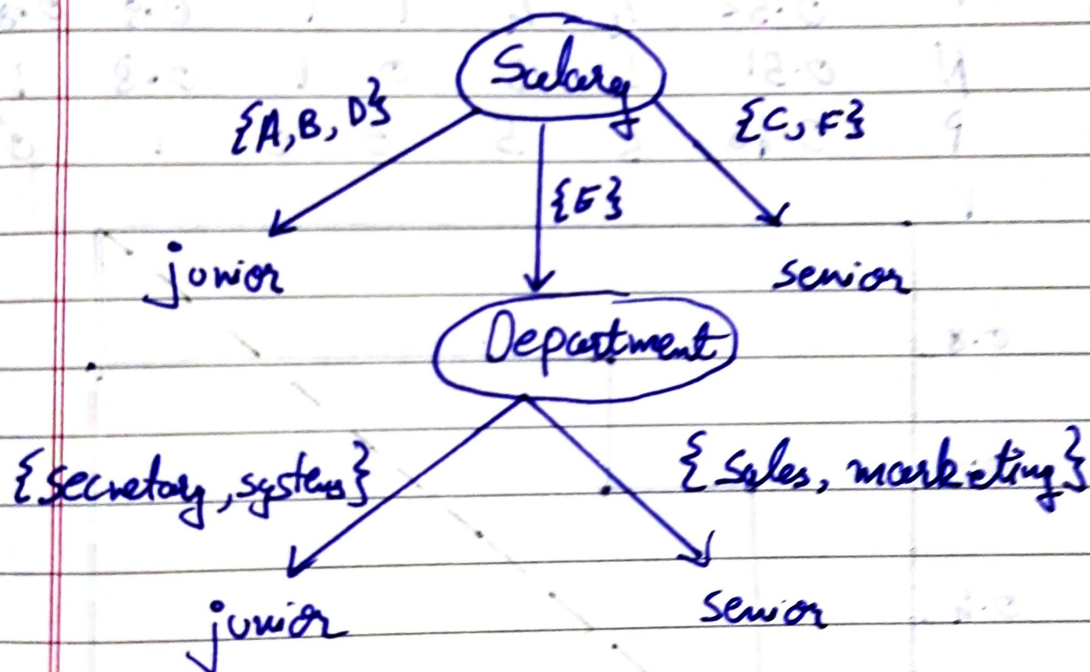 Salary
{A, B, D}
{C, F}
{E}
junior
senior
Department
{secretary, systems}
{Sales, marketing}
junior
senior